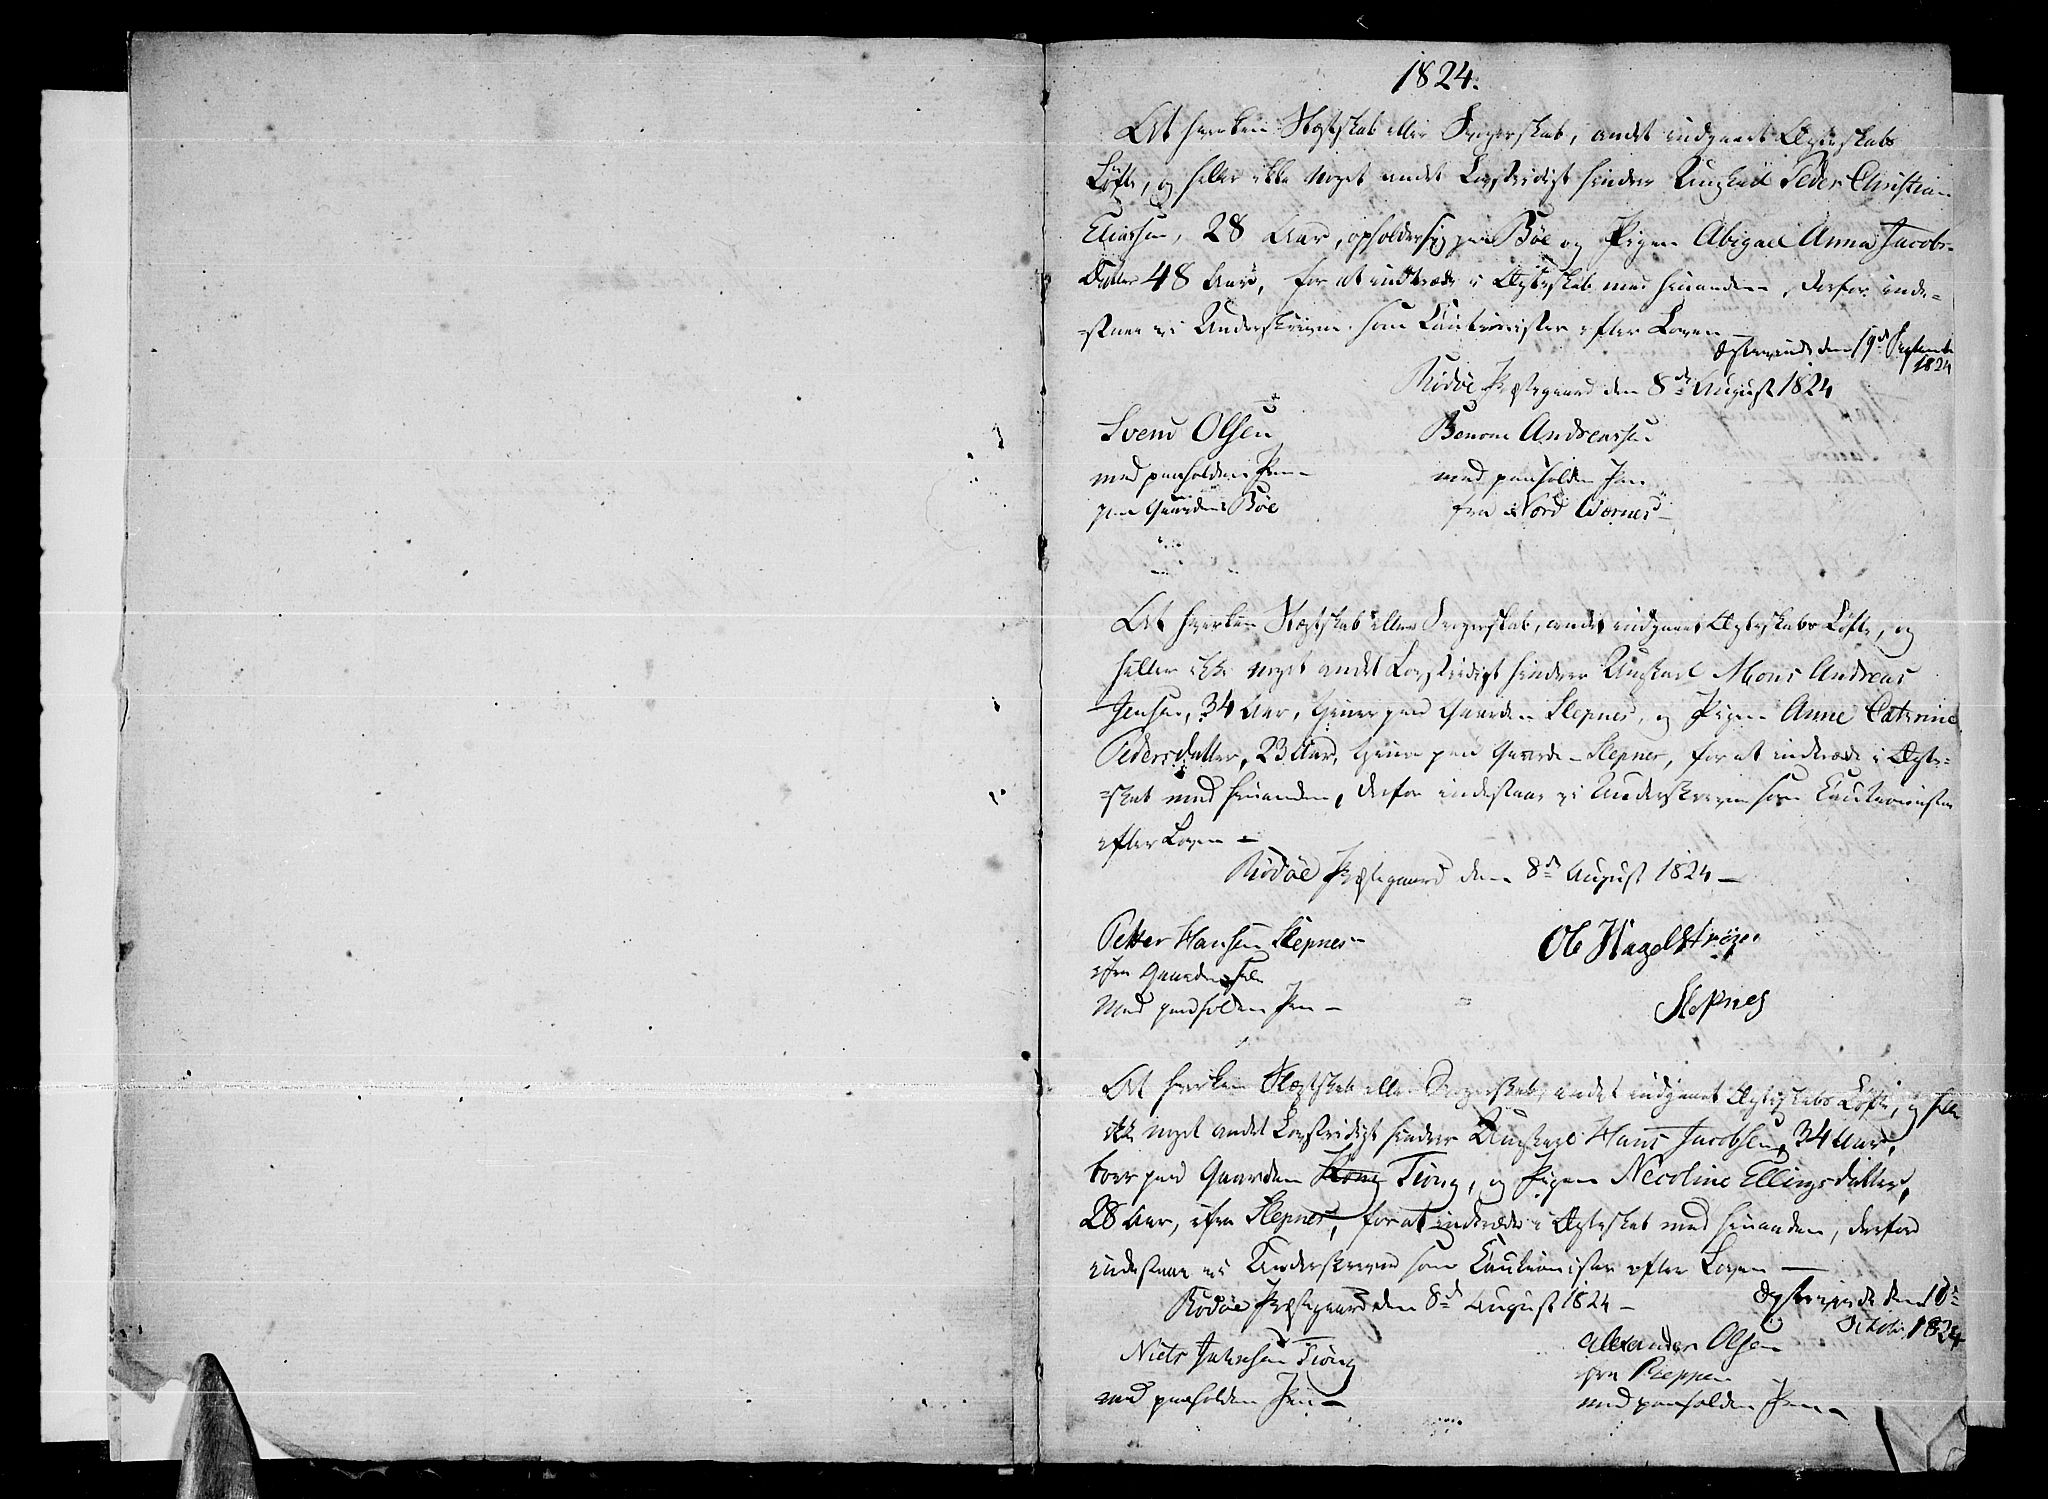 1824.
At hverken Slægtskab eller Svogerskab, andet indgaaet Ægteskabs
Løfte, og heller ikke noget andet Lovstridigt hindrer Ungkarl Peder Christian
Eliassen, 28 Aar, opholder sig paa Bøe og Pigen Abigael Anna Jacobs-
Datter 48 Aar, for at indtræde i Ægteskab med hinanden, derfor inde-
-staae vi Underskrevne som Cautionister efter Loven
Ægteviede den 19de Septembr
1824
Rödöe Præstegaard den 8de August 1824
Svend Olsen
med paaholden Pen
paa Gaarden Bøe
Benone Andreassen
med paaholden Pen
fra Nord Wærnes
At hverken Slægtskab eller Svogerskab, andet indgaaet Ægteskabs Løfte, og
heller ikke noget andet Lovstridigt hindrer Ungkarl Mons Andreas
Jensen, 34 Aar, tjener paa Gaarden Slepnes, og Pigen Anne Catrine
Pedersdatter, 23 Aar, tjener paa Gaarden Slepnes, for at indtræde i Ægte-
-skab med hinanden, derfor indestaae vi Underskrevne som Cautionister
efter Loven –
Rödöe Præstegaard den 8de August 1824 –
Petter Hansen Slepnes
Med paaholden Pen –
Ole Hagelstrøm
Slepnes
At hverken Slægtskab eller Svogerskab, andet indgaaet Ægteskabs Løfte, og heller
ikke noget andet Lovstridigt hindrer Ungkarl Hans Jacobsen, 34 Aar,
boer paa Gaarden Tiong, og Pigen Necoline Ellingsdatter,
28 Aar, ifra Slepnes, for at indtræde i Ægteskab med hinanden, derfor
indestaae vi Underskrevne som Cautionister efter Loven –
Rödöe Præstegaard den 8de August 1824 –
Ægteviede den 10de
October 1824
Niels Johnsen Tiong
med paaholden Pen –
Alexander Olsen
fra Reppen
med paaholden Pen –